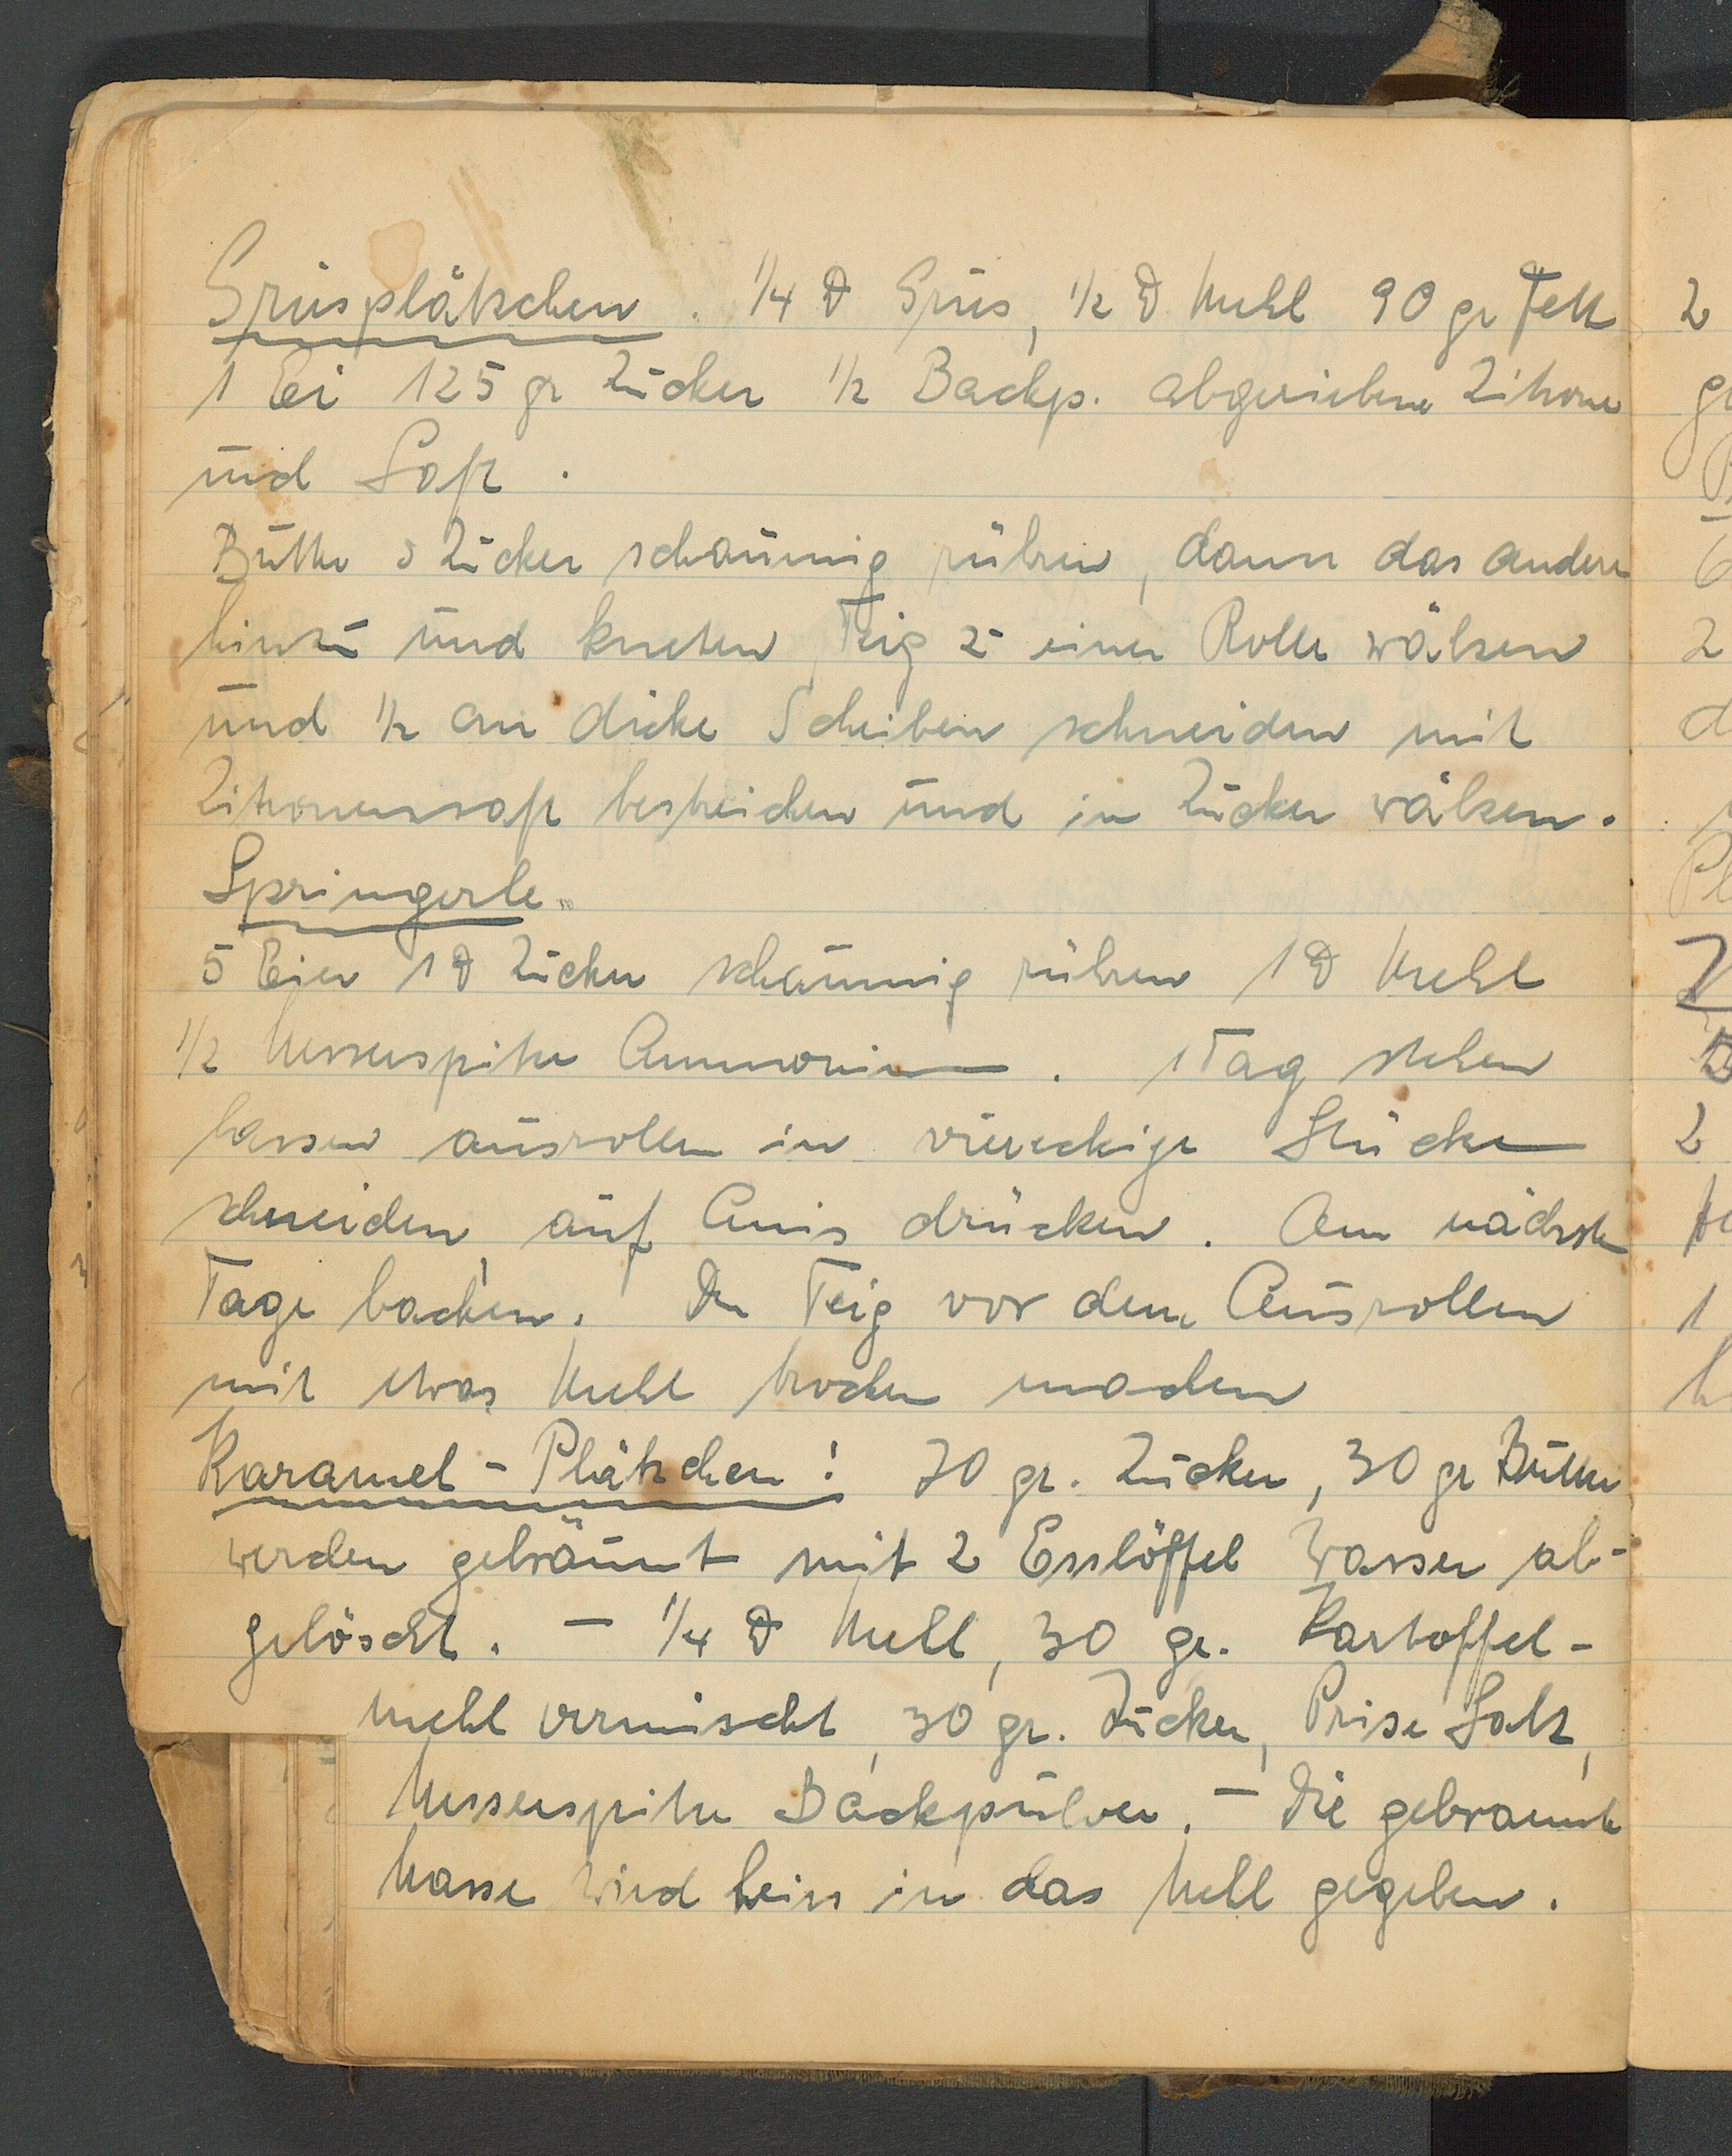 Griesplätzchen. 1/4 ℔ Gries, 1/2 ℔ Mehl 90 gr Fett
1 Ei 125 gr Zucker 1/2 Backp. abgeriebene Zitrone
und Saft.
Butter & Zucker schaumig rühren, dann das andere
hinzu und kneten, Teig zu einer Rolle wälzen
und 1/2 cm dicke Scheiben schneiden mit
Zitronensaft bestreichen und in Zucker wälzen.
Springerle.
5 Eier 1 ℔ Zucker schaumig rühren 1 ℔ Mehl
1/2 Messerspitze Ammonium. 1 Tag stehen
lassen ausrollen in viereckige Stücke
schneiden, auf Anis drücken. Am nächsten
Tage backen. Den Teig vor dem Ausrollen
mit etwas Mehl trocken machen
Karamel-Plätzchen: 70 gr. Zucker, 30 gr Butter
werden gebräunt mit 2 Esslöffel Wasser ab-
gelöscht. - 1/4 ℔ Mehl, 30 gr. Kartoffel-
mehl vermischt, 30 gr. Zucker, Prise Salz,
Messerspitze Backpulver. - Die gebrannte
Masse wird heiss in das Mehl gegeben.